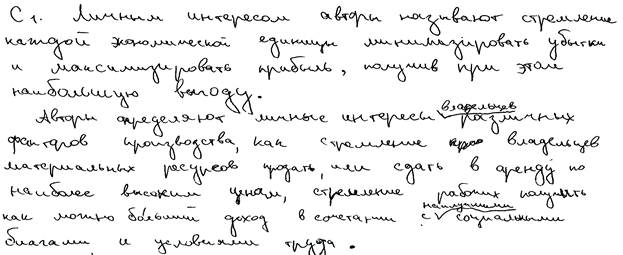 С1. Личным интересом авторы называют стремление
каждой экономической единицы минимизировать убытки
и максимизировать прибыль, получив при этом
наибольшую выгоду.
Авторы определяют личные интересы владельцев различных
факторов производства, как стремление владельцев
материальных ресурсов продать, или сдать в аренду по
наиболее высоким ценам, стремление рабочих получить
как можно больший доход в сочетании с наилучшими социальными
благами и условиями труда.